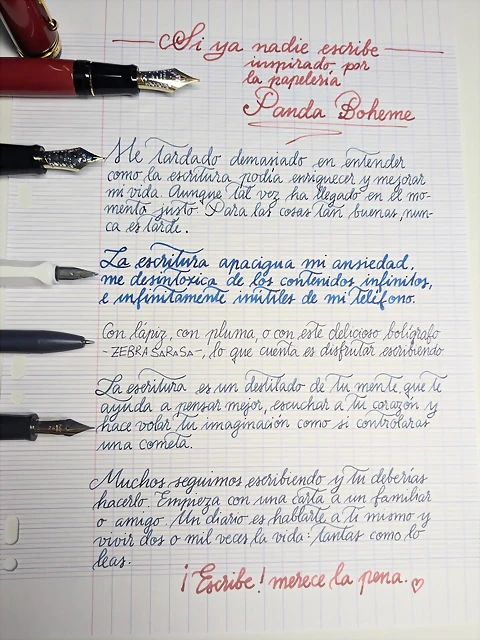 Si ya nadie escribe
inspirado por
la papelería
Panda Boheme
Me tardado demasiado en entender
como la escritura podía enriquecer y mejorar
mi vida. Aunque tal vez ha llegado en el mo-
mento justo. Para las cosas tan buenas, nun-
ca es tarde.
La escritura apacigua mi ansiedad,
me desintoxica de los contenidos infinitos,
e infinitamente inútiles de mi teléfono.
Con lápiz, con pluma, o con este delicioso bolígrafo
-ZEBRA SARASA-, lo que cuenta es disfrutar escribiendo
La escritura es un destilado de tu mente, que te
ayuda a pensar mejor, escuchar a tu corazón y
hace volar tu imaginación como si controlaras
una cometa.
Muchos seguimos escribiendo y tu deberías
hacerlo. Empieza con una carta a un familiar
o amigo. Un diario es hablarte a ti mismo y
vivir dos o mil veces la vida: tantas como lo
leas.
¡Escribe! merece la pena.